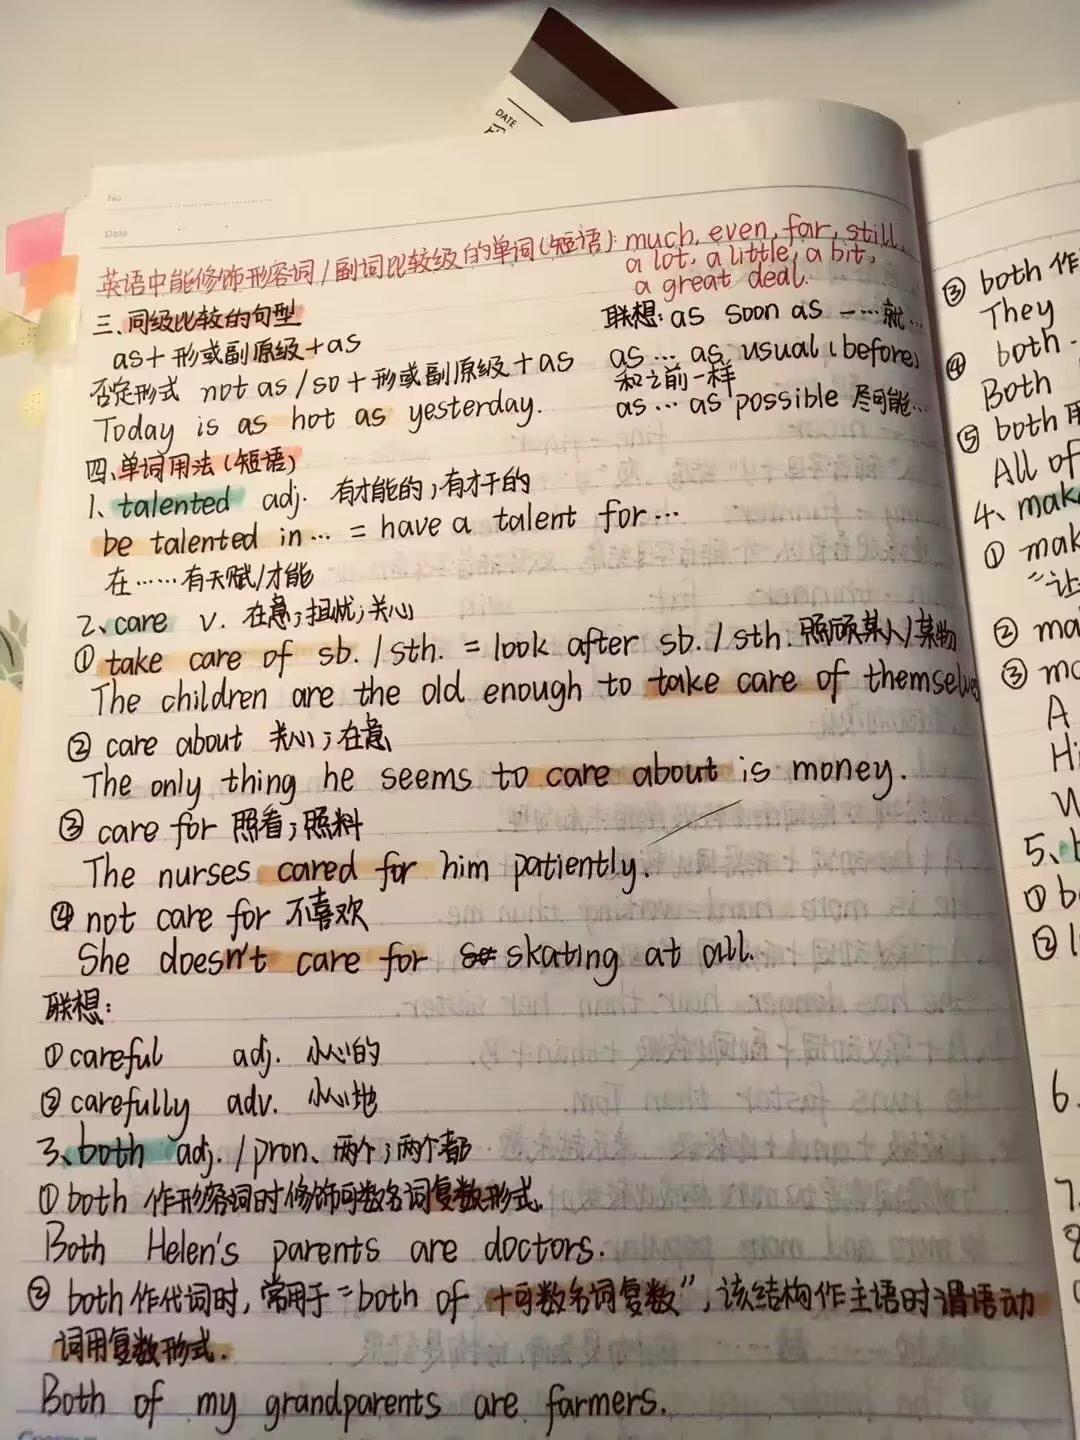 DATE
No
Date
英语中能修饰形容词/副词比较级的单词(短语): much, even, far, still,
a lot, a little, a bit,
a great deal.
三、同级比较的句型
as+形或副原级+as
否定形式 not as/so+形或副原级+as
Today is as hot as yesterday.
联想: as soon as 一……就…
as … as usual (before)
和之前一样
as … as possible 尽可能…
四、单词用法(短语)
1、talented adj. 有才能的;有才干的
be talented in … = have a talent for …
在……有天赋/才能
2、care v. 在意;担忧;关心
① take care of sb. / sth. = look after sb. / sth. 照顾某人/某物
The children are the old enough to take care of themselves
② care about 关心;在意
The only thing he seems to care about is money.
③ care for 照看;照料
The nurses cared for him patiently.
④ not care for 不喜欢
She doesn't care for skating at all.
联想:
① careful adj. 小心的
② carefully adv. 小心地
3、both adj. / pron、两个;两个都
① both 作形容词时修饰可数名词复数形式.
Both Helen's parents are doctors.
② both 作代词时,常用于"both of +可数名词复数",该结构作主语时谓语动
词用复数形式.
Both of my grandparents are farmers.
③ both 作
They
④ both
Both
⑤ both 用
All of
4、make
①
"让
②
③
A
5、
①
②
6、
7、